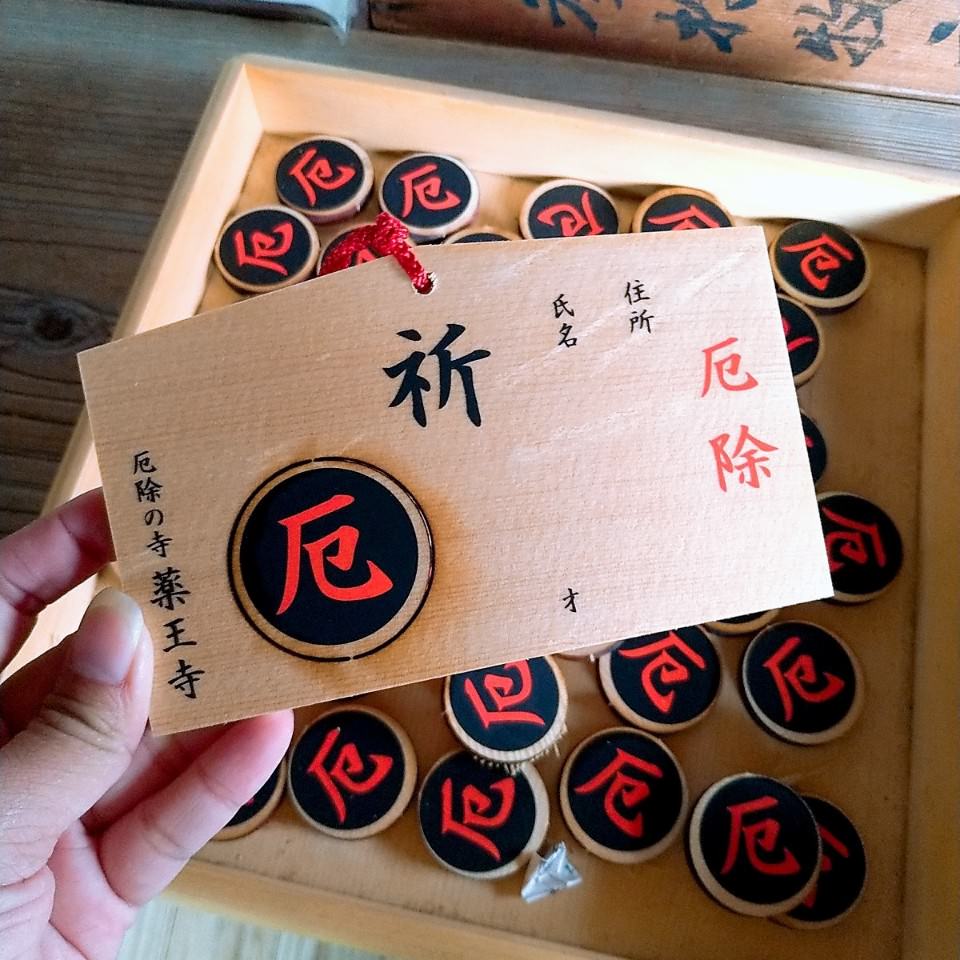 厄除
住所
氏名
才
祈
厄
厄除の寺 薬王寺
厄
厄
厄
厄
厄
厄
厄
厄
厄
厄
厄
厄
厄
厄